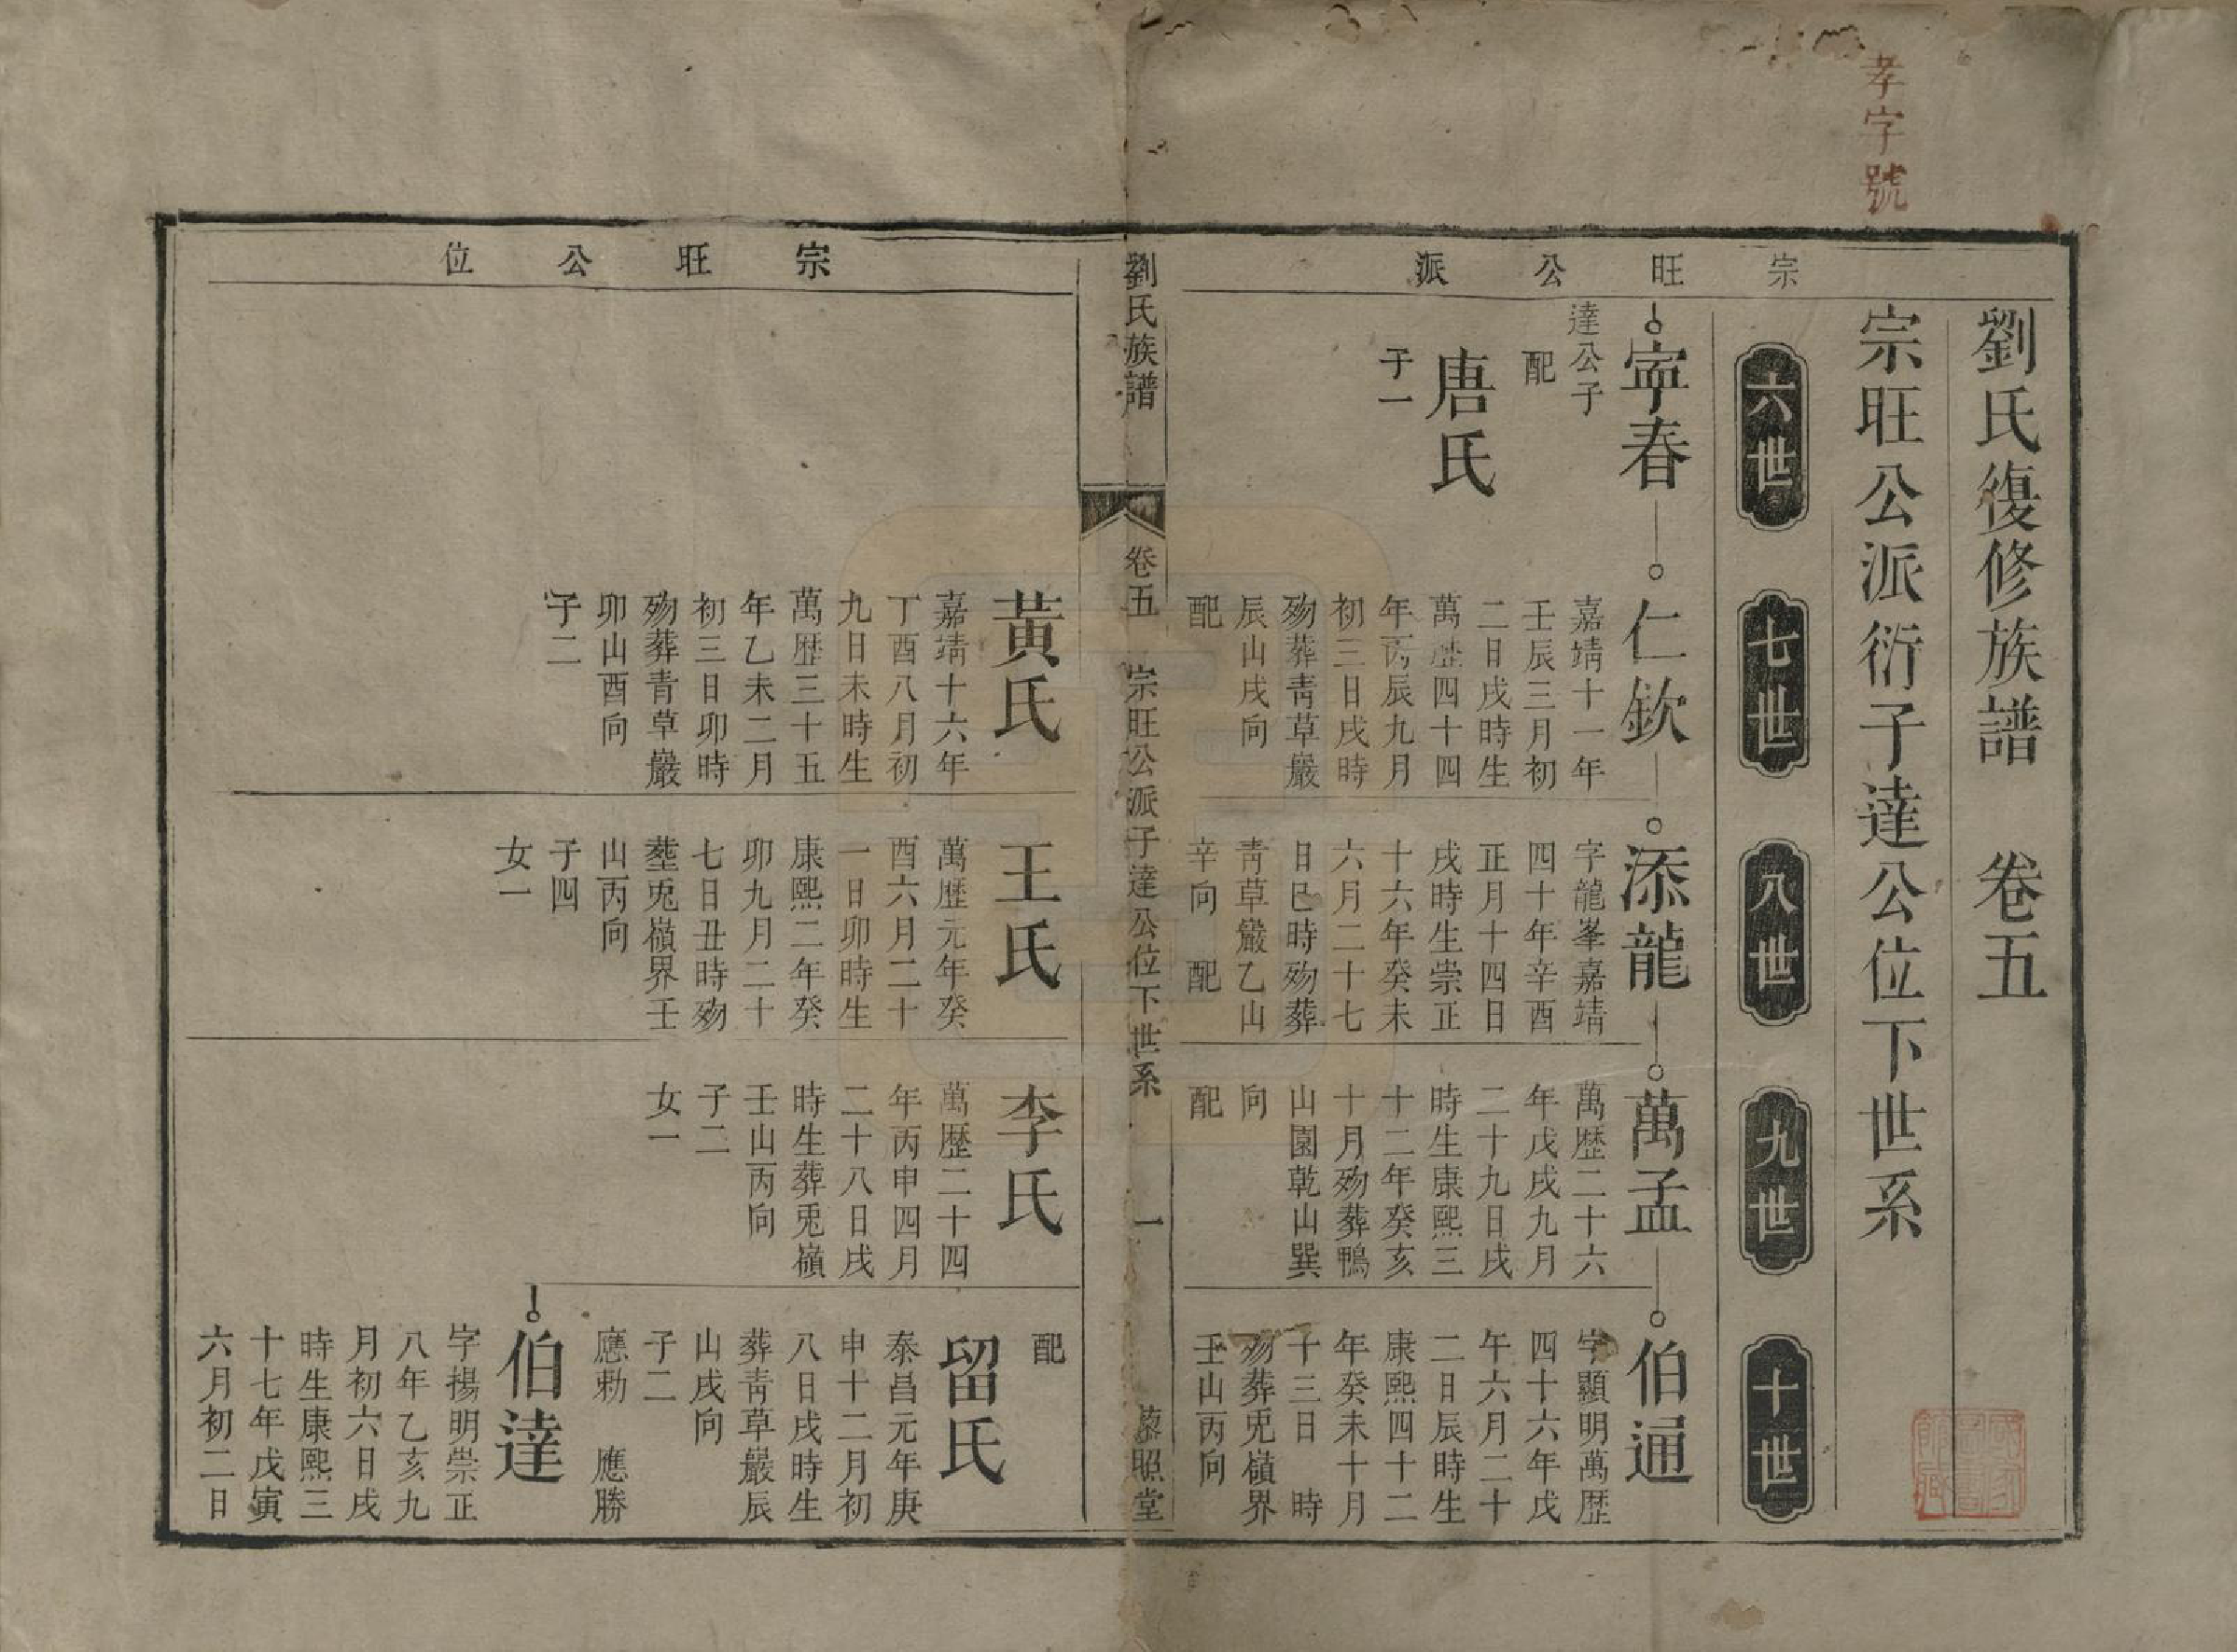 孝字號
劉氏復修族譜 卷五
宗旺公派衍子達公位下世系
宗旺公派
六世
七世
八世
九世
十世
寍春
達公子
配
唐氏
子一
仁欽
嘉靖十一年
壬辰三月初
二日戌時生
萬歴四十四
年丙辰九月
初三日戌時
殁葬青草巖
辰山戌向
配
添龍
字龍峯嘉靖
四十年辛酉
正月十四日
戌時生崇正
十六年癸未
六月二十七
日巳時殁葬
青草巖乙山
辛向 配
萬孟
萬歴二十六
年戊戌九月
二十九日戌
時生康熙三
十二年癸亥
十月殁葬鴨
山園乾山巽
向
配
伯通
字顯明萬歴
四十六年戊
午六月二十
二日辰時生
康熙四十二
年癸未十月
十三日 時
殁葬兎嶺界
壬山丙向
劉氏族譜
卷五 宗旺公派子達公位下世系
一
藜照堂
宗旺公位
黃氏
嘉靖十六年
丁酉八月初
九日未時生
萬歴三十五
年乙未二月
初三日卯時
殁葬青草巖
卯山酉向
子二
王氏
萬歴元年癸
酉六月二十
一日卯時生
康熙二年癸
卯九月二十
七日丑時殁
塟兎嶺界壬
山丙向
子四
女一
李氏
萬歴二十四
年丙申四月
二十八日戌
時生葬兎嶺
壬山丙向
子二
女一
配
留氏
泰昌元年庚
申十二月初
八日戌時生
葬青草巖辰
山戌向
子二
應勑 應勝
伯達
字揚明崇正
八年乙亥九
月初六日戌
時生康熙三
十七年戊寅
六月初二日